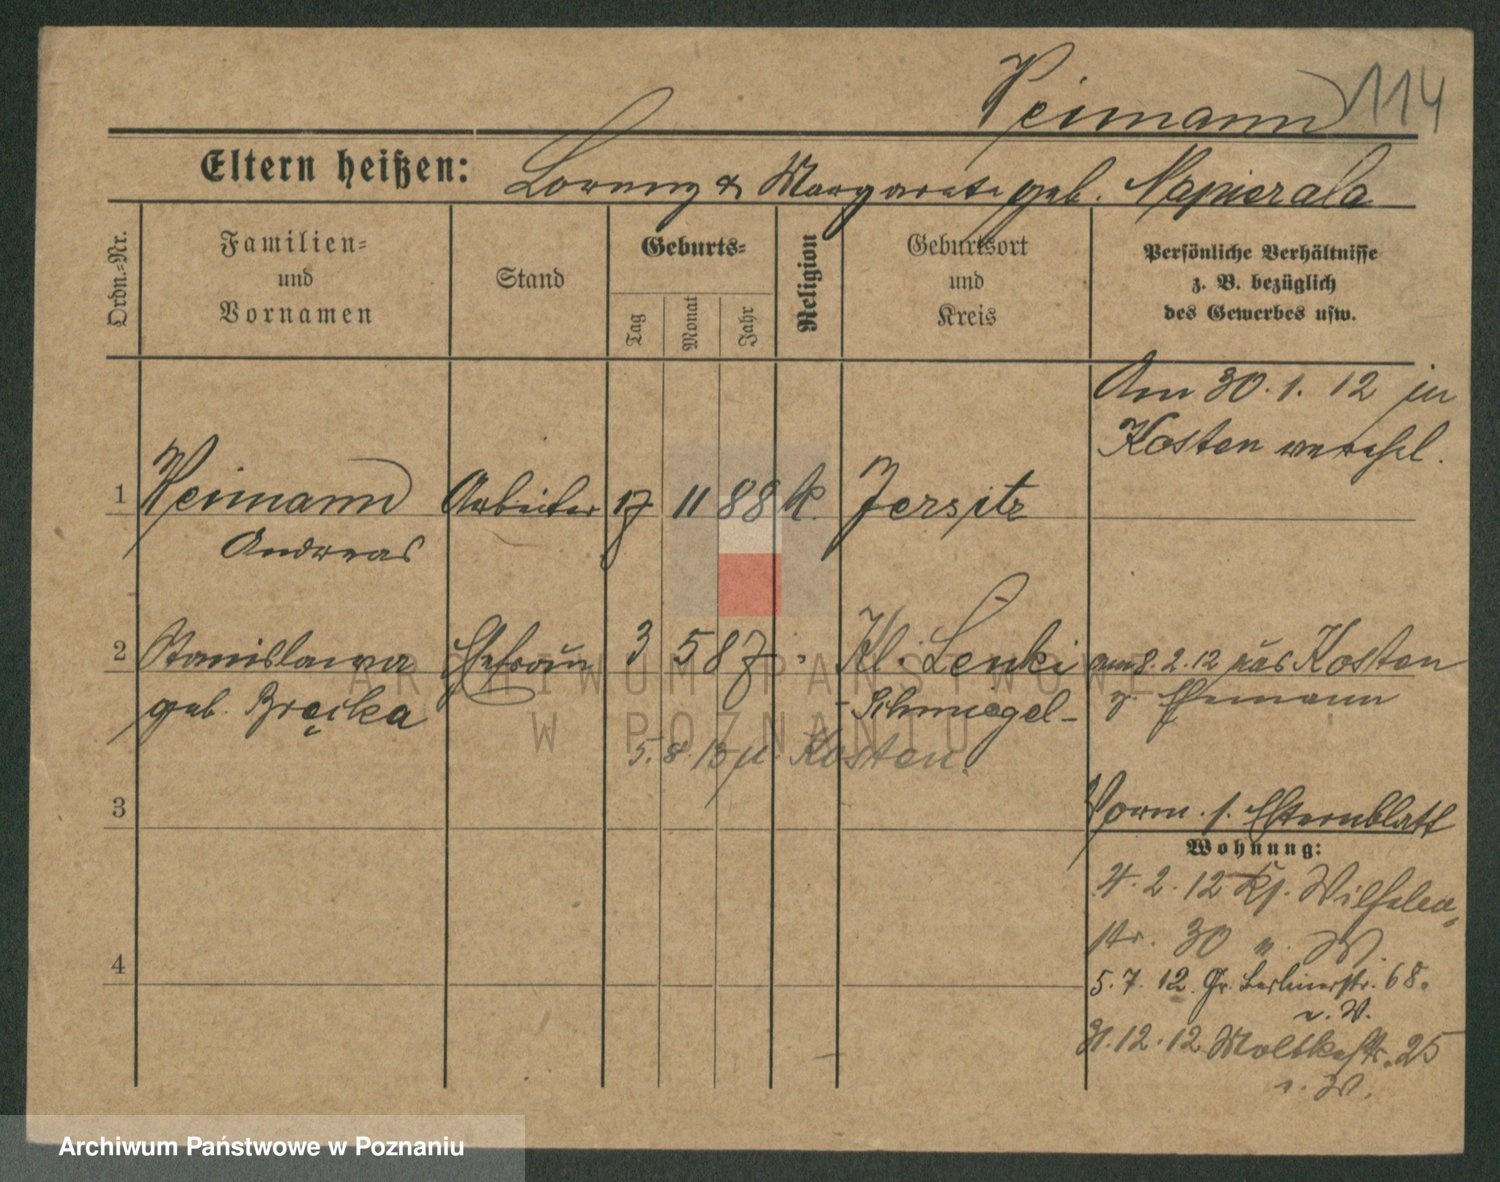 Reimann 114
Eltern heißen: Lorenz & Margarete geb. Napierala
Ordn.-Nr.
Familien-
und
Vornamen
Stand
Geburts-
Tag
Monat
Jahr
Religion
Geburtsort
und
Kreis
Persönliche Verhältnisse
z. B. bezüglich
des Gewerbes usw.
Am 30.1.12 in
Kosten verehel.
1 Reimann Arbeiter 17 11 88 k. Jersitz
Andreas
2 Stanislawa Ehefrau 3 5 87 " Kl. Lenki am 8.2.12 aus Kosten
geb. Bręcka -Schmiegel- z. Ehemann
5.8.13 n. Kosten.
3
Vorm. s. Elternblatt
Wohnung:
4.2.12 Wilhelm-
str. 30
4
5.7.12. Gr. Berlinerstr. 68.
v. W.
31.12.12 Moltkestr. 25
v. W.
ARCHIWUM PAŃSTWOWE
W POZNANIU
Archiwum Państwowe w Poznaniu